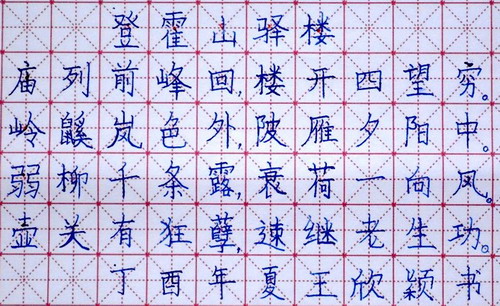 登霍山驿楼
庙列前峰回,楼开四望穷。
岭鼷岚色外,陂雁夕阳中。
弱柳千条露,衰荷一向风。
壶关有狂孽,速继老生功。
丁酉年夏王欣颖书